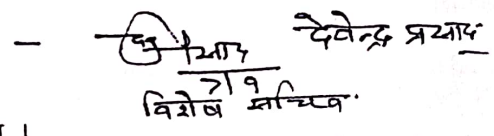 - देवेन्द्र प्रसाद
7/9
विशेष सचिव.